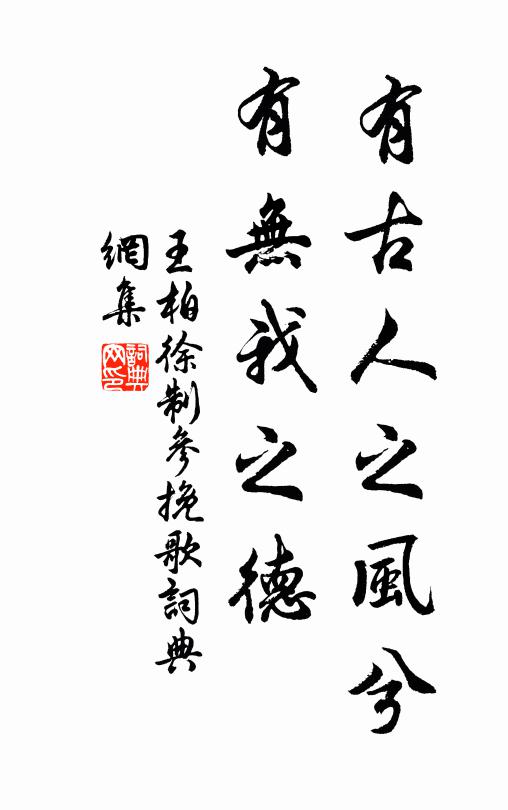 有古人之風兮
有無我之德
王柏徐制參挽歌詞典
網集
詞典
网印